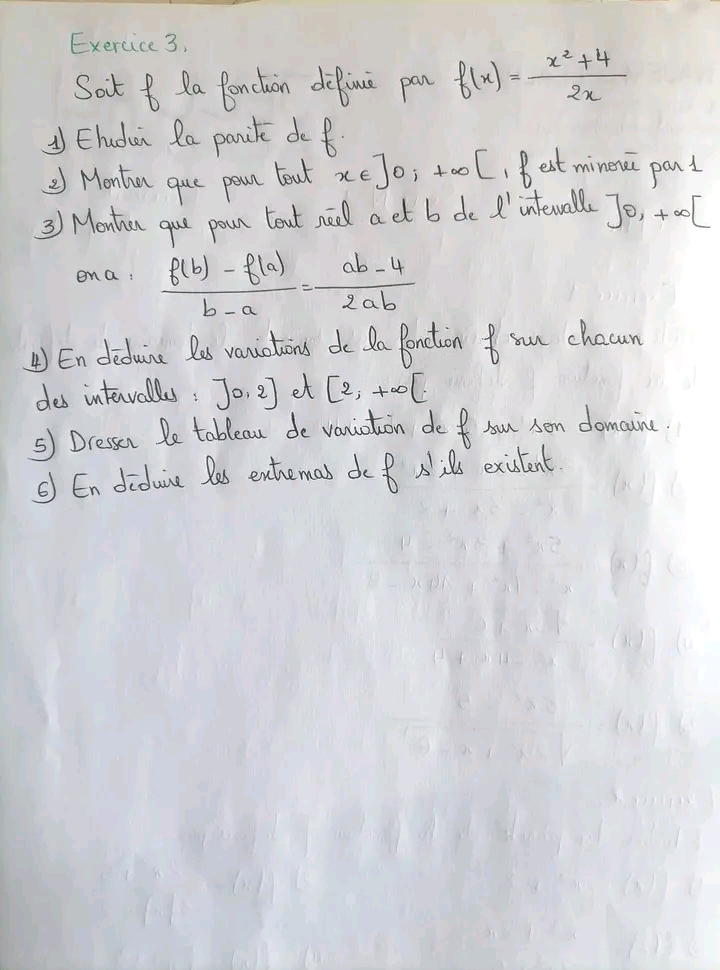 Exercice 3.
Soit f la fonction définie par f(x) = x² + 4 / 2x
1) Etudier la parité de f.
2) Montrer que pour tout x ∈ ]0; +∞[, f est minorée par 1
3) Montrer que pour tout réel a et b de l'intervalle ]0, +∞[
on a : f(b) - f(a) / b - a = ab - 4 / 2ab
4) En déduire les variations de la fonction f sur chacun
des intervalles : ]0, 2] et [2; +∞[.
5) Dresser le tableau de variation de f sur son domaine.
6) En déduire les extremas de f s'ils existent.